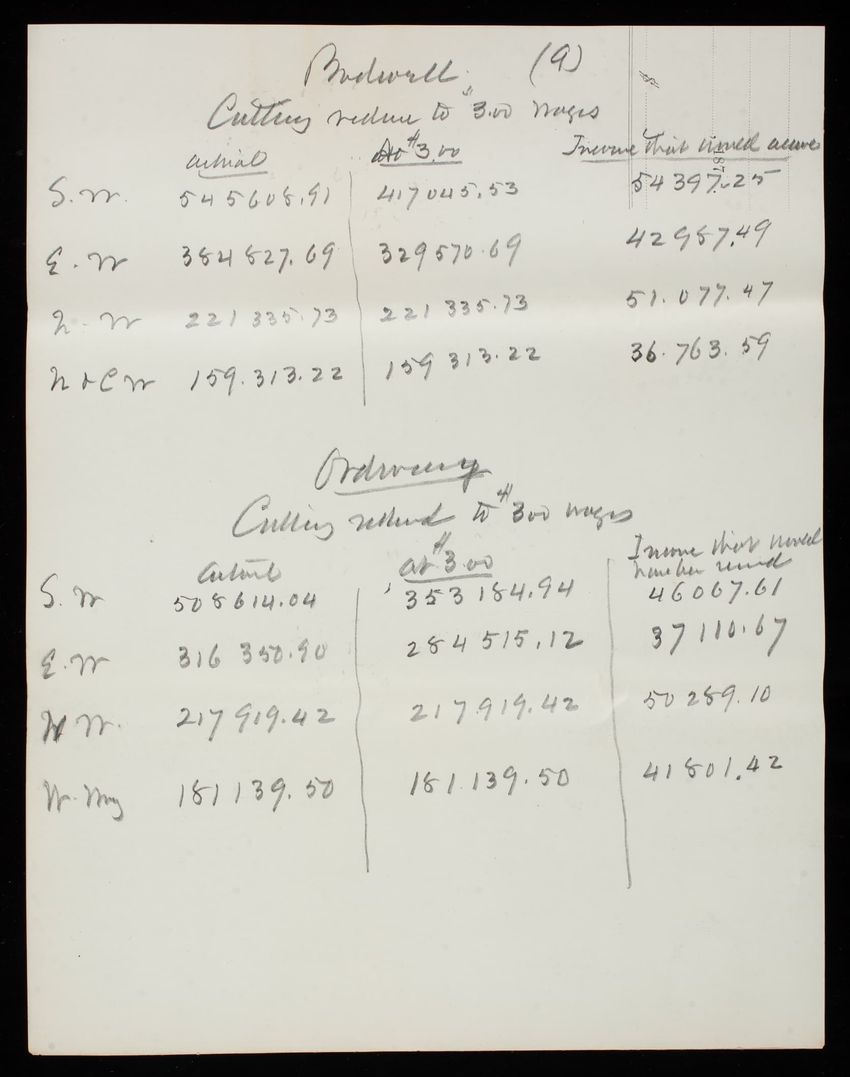 Bodwell. (9)
Cutting reduce to $3.00 wages
actual at $3.00 Income that would accrue
S. W. 545608.91 417045.53 54397.25
E. W 384827.69 329570.69 42987.49
N. W 221335.73 221335.73 51.077.47
N & C W 159.313.22 159313.22 36.763.59
Ordway
Cutting reduced to $3.00 wages
Actual at $3.00 Income that would
have been
S. W 508614.04 353184.94 46067.61
E. W 316350.90 284515.12 37110.67
N W. 217919.42 217919.42 50289.10
W. Wing 181139.50 181.139.50 41801.42